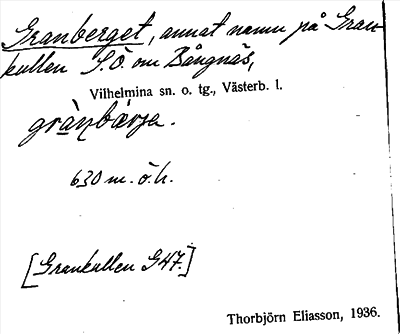 Granberget, annat namn på Gran-
kullen S.Ö. om Bångnäs,
Vilhelmina sn. o. tg., Västerb. l.
grànbàrja.
630 m. ö. h.
[Grankullen G47.]
Thorbjörn Eliasson, 1936.